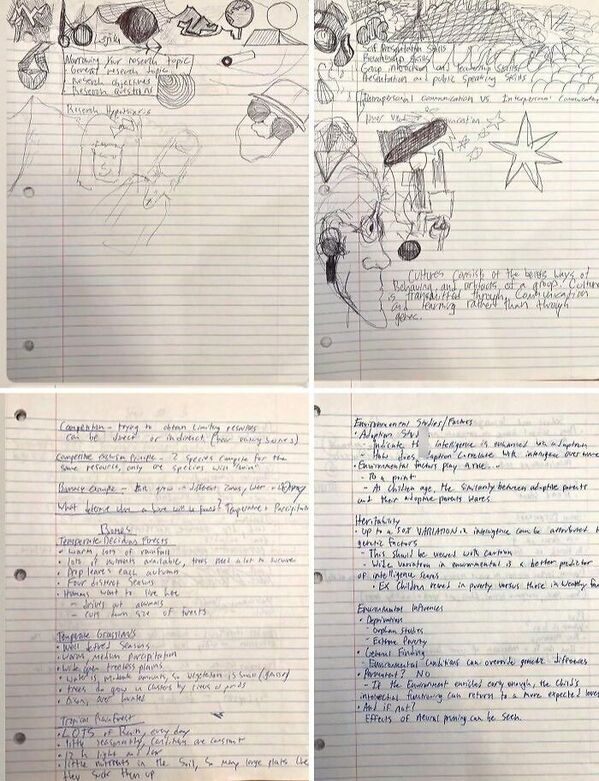 Narrowing your research topic
General research topic
Research objectives
Research questions
Research Hypothesis
Presentation skills
Relationship skills
Group interaction and leadership skills
Presentation and public speaking skills
Intrapersonal communication VS Interpersonal Communication
Cultures consist of the ways of
Behaving and artifacts of a group. Culture
is transmitted through Communication
and learning rather than through
genes.
Competition - trying to obtain limiting resources
can be direct or indirect
Competitive Exclusion Principle - 2 species compete for the
same resources, only one species will "win"
Barnacle example - grow in different zones,
What determines where a biome will be found? Temperature + Precipitation
Biomes
Temperate Deciduous Forests
• Warm, lots of rainfall
• lots of nutrients available, trees need a lot to survive
• Drop leaves each autumn
• Four distinct seasons
• Humans want to live here
- drives out animals
- cuts down size of forests
Temperate Grasslands
• Well defined seasons
• Warm, medium precipitation
• Wide open treeless plains
• Water is moderate amounts, so vegetation is small (grasses)
• trees do grow in clusters by rivers or ponds
• over hunted
Tropical Rainforest
• LOTS of Rain, every day
• little seasonality, conditions are constant
• 12 h light and day
• little nutrients in the soil, so many large plants
they them up
Environmental Studies/Factors
• Adoption
- Indicate intelligence is enhanced
- How does correlate with intelligence over
• Environmental factors play a role...
- To a point
- As children age, the similarity between adoptive parents
and their adoptive parents
Heritability
• up to a 50% VARIATION in intelligence can be attributed
genetic factors
- This should be viewed with caution
- Wide variation in environmental is a better predictor
of intelligence scores
• Ex Children reared in poverty versus those in wealthy
Environmental Influences
• Deprivation
- Orphan studies
- Extreme Poverty
• General Finding
- Environmental conditions can override genetic differences
• Permanent? NO
- If the Environment enriched early enough, the child's
intellectual functioning can return to a more expected level
• And if not?
Effects of Neural pruning can be seen